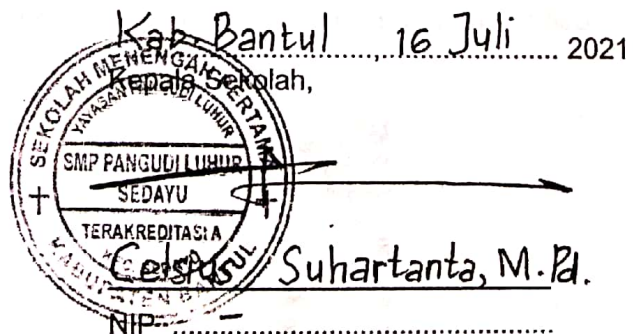 Kab. Bantul, 16 Juli 2021
Kepala Sekolah,
SEKOLAH MENENGAH PERTAMA
YAYASAN PANGUDI LUHUR
SMP PANGUDI LUHUR
SEDAYU
TERAKREDITASI A
KABUPATEN BANTUL
Celsius Suhartanta, M.Pd.
NIP. –